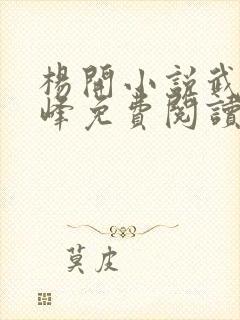 楊開小説武
峰免費閱讀
莫皮